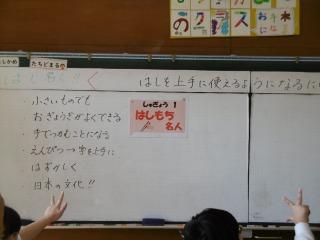 の クラス おに
たちどまる
はしを上手に使えるようになるに
・小さいものでも
おぎょうぎがよくできる
・手でつかむことになる
・えんぴつ→字を上手に
・はずかしく
・日本の文化!!
しゅぎょう 1
はしもち
名人